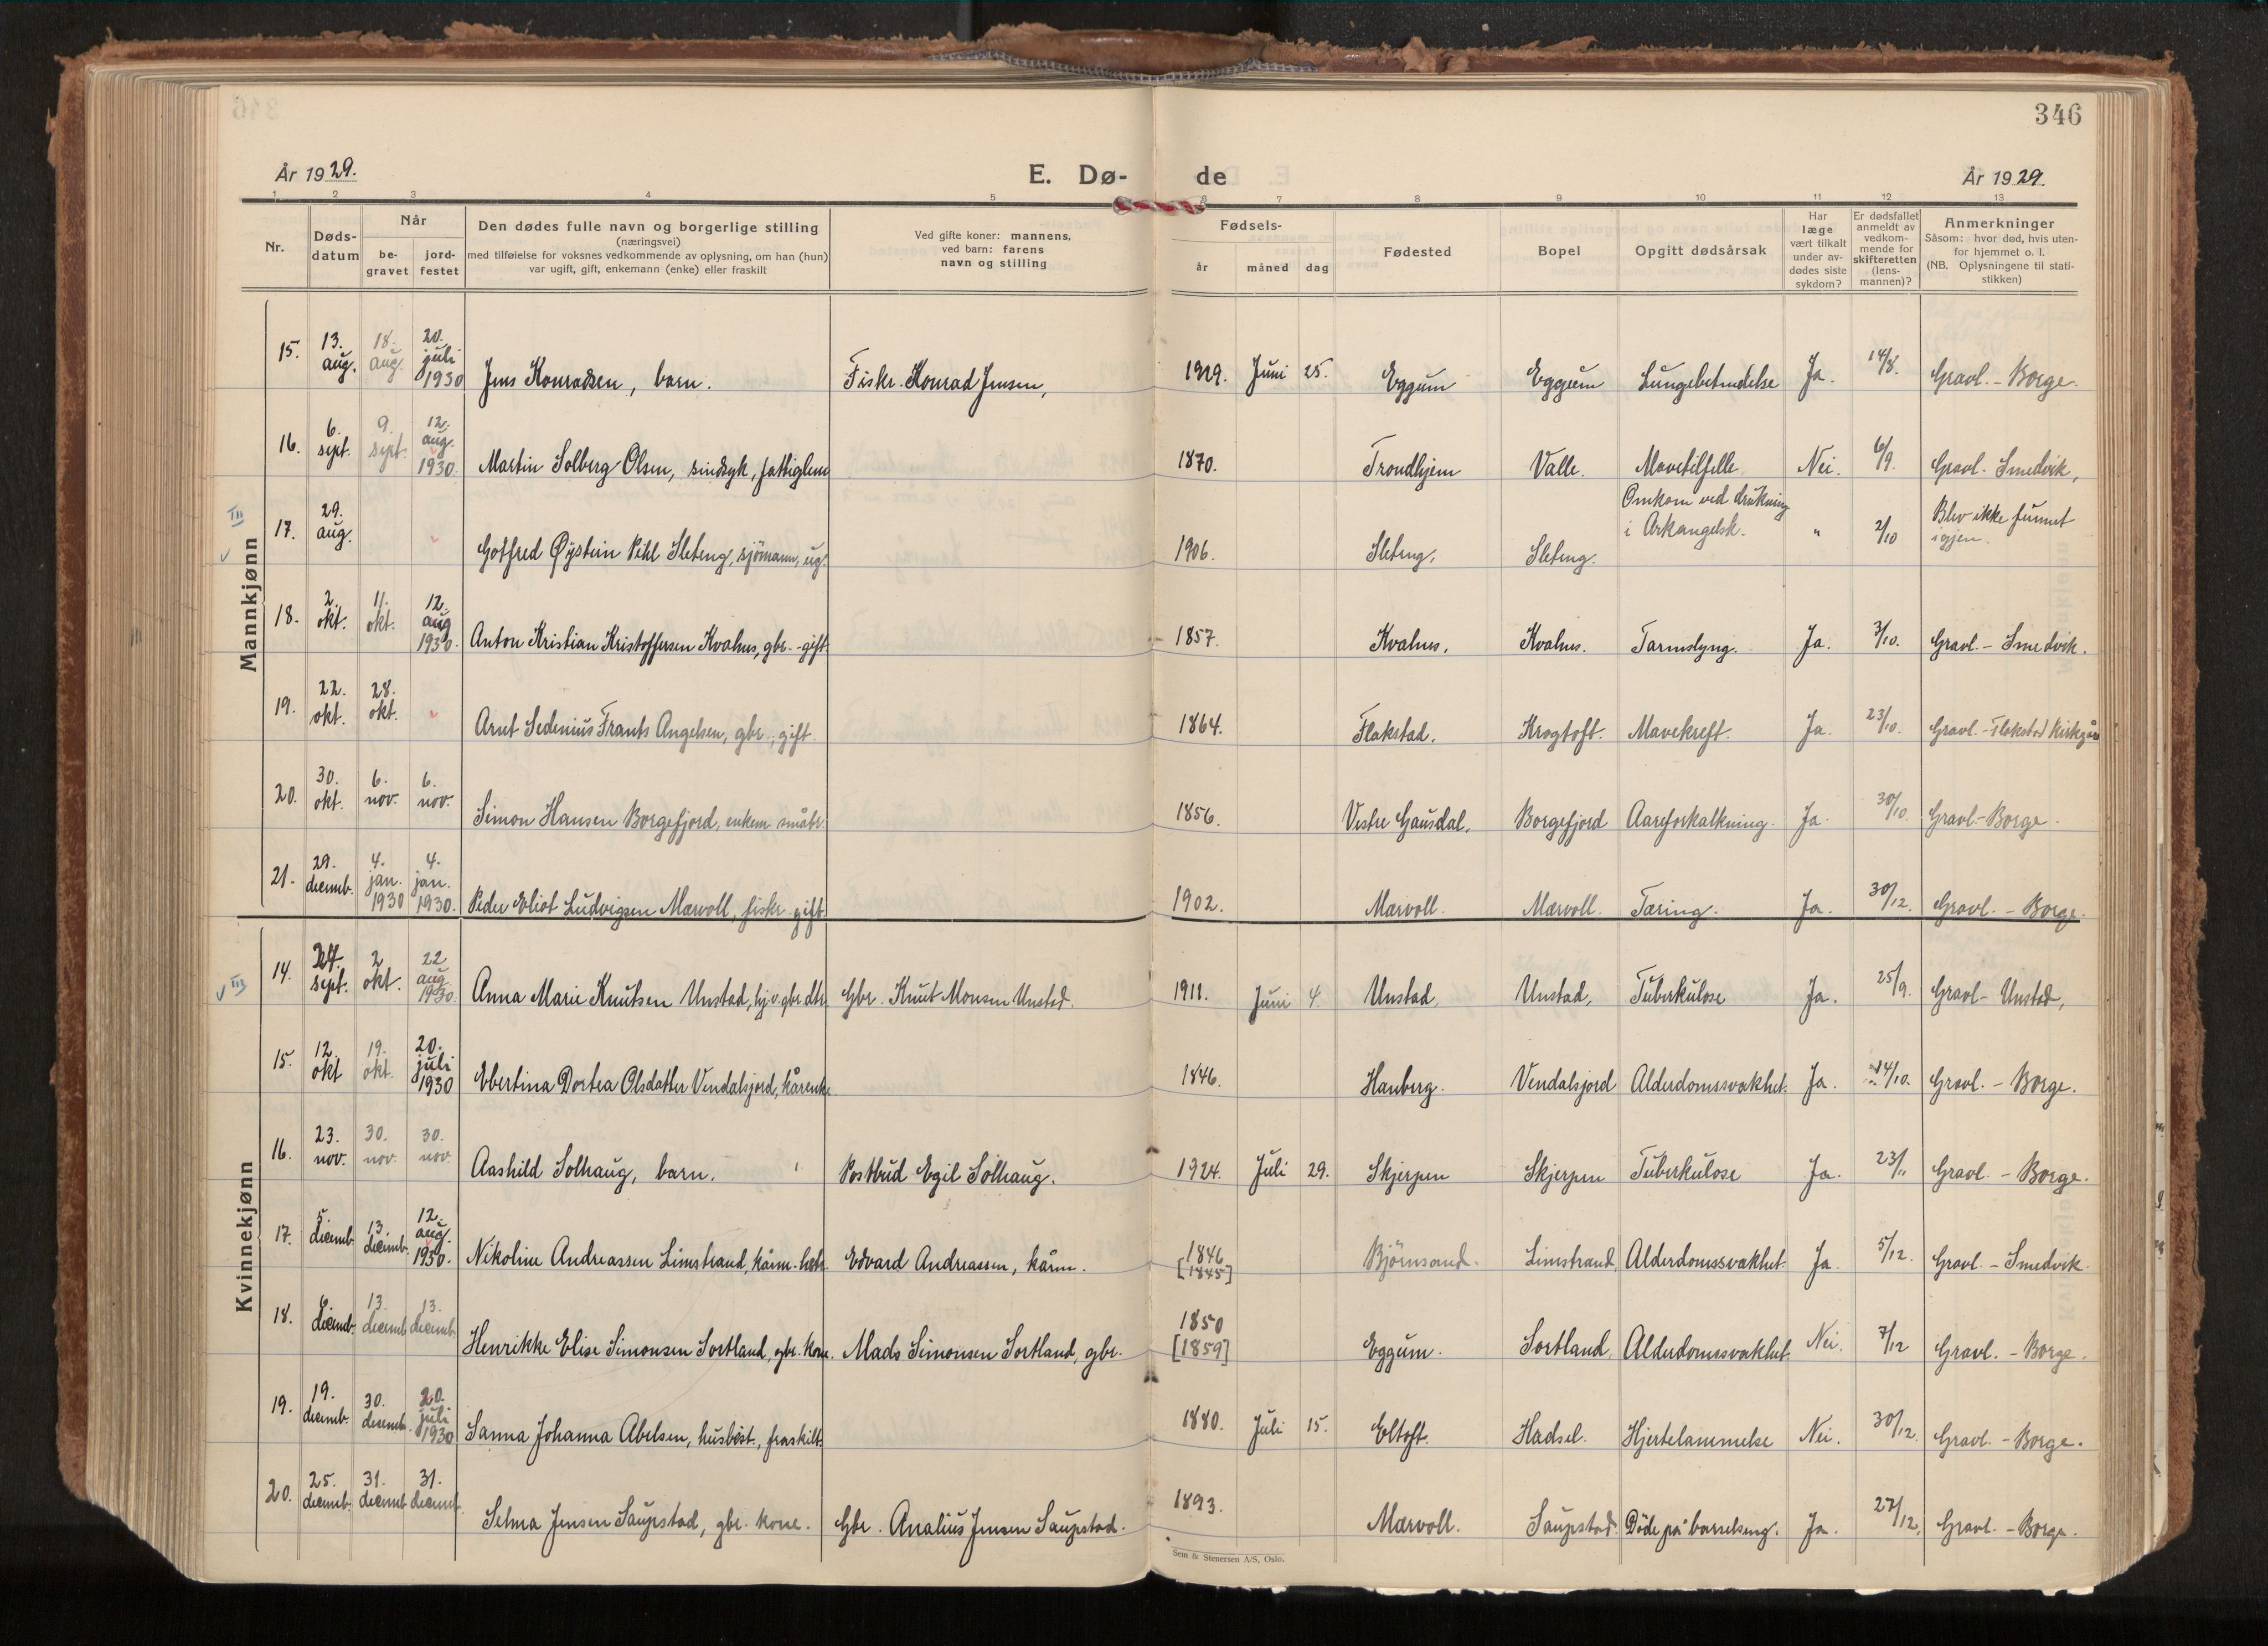 346
År 1929. E. Dø- de År 1929.
1 2 3 4 5 6 7 8 9 10 11 12 13
Nr. Døds-datum Når be-gravet jord-festet Den dødes fulle navn og borgerlige stilling (næringsvei) med tilføielse for voksnes vedkommende av oplysning, om han (hun) var ugift, gift, enkemann (enke) eller fraskilt Ved gifte koner: mannens, ved barn: farens navn og stilling Fødsels- år måned dag Fødested Bopel Opgitt dødsårsak Har læge vært tilkalt under av-dødes siste sykdom? Er dødsfallet anmeldt av vedkom-mende for skifteretten (lens-mannen)? Anmerkninger Såsom: hvor død, hvis uten-for hjemmet o. l. (NB. Oplysningene til stati-stikken)
Mannkjønn
15. 13. aug. 18. aug. 20. juli 1930 Jens Konradsen, barn. Fisker. Konrad Jensen, 1929. Juni 25. Eggum Eggum Lungebetendelse Ja. 14/8. Gravl. - Borge.
16. 6. sept. 9. sept. 12. aug. 1930. Martin Solberg Olsen, sindsyk, fattiglem 1870. Trondhjem Valle. Mavetilfelle. Nei. 6/9. Gravl. - Smedvik,
17. 29. aug. Gotfred Øystein Pihl Sleteng, sjömann, ug. 1906. Sleteng, Sleteng. Omkom ved drukning i Arkangelsk. " 2/10 Blev ikke funnet igjen.
18. 2. okt. 11. okt. 12. aug 1930. Anton Kristian Kristoffersen Kvalnes, gbr. - gift. 1857. Kvalnes. Kvalnes. Tarmslyng. Ja. 3/10. Gravl. - Smedvik.
19. 22. okt. 28. okt. Arnt Sedenius Frants Angelsen, gbr., gift. 1864. Flakstad. Krogtoft. Mavekreft. Ja. 23/10. Gravl. - Flakstad Kirkegår
20. 30. okt. 6. nov. 6. nov. Simon Hansen Borgefjord, enkem småbr. 1856. Vestre Gausdal. Borgefjord Aareforkalkning. Ja. 30/10. Gravl. - Borge.
21. 29. decemb. 4. jan. 1930 4. jan. 1930. Peder Eliot Ludvigsen Mærvoll, fiskr gift 1902. Mærvoll. Mærvoll. Tæring. Ja. 30/12. Gravl. - Borge.
Kvinnekjønn
14. 24. sept. 2 okt. 22 aug 1930. Anna Marie Knutsen Unstad, hj.v. gbr. dtr. Gbr. Knut Monsen Unstad. 1911. Juni 4. Unstad, Unstad, Tuberkulose Ja. 25/9. Gravl. - Unstad,
15. 12. okt 19. okt. 20. juli 1930 Ebertina Dortea Olsdatter Vendalsjord, kårenke 1846. Hauberg. Vendalsjord Alderdomssvakhet. Ja. 14/10. Gravl. - Borge.
16. 23. nov. 30. nov. 30. nov. Aashild Solhaug, barn. Postbud Egil Solhaug. 1924. Juli 29. Skjerpen Skjerpen Tuberkulose Ja. 23/11 Gravl. - Borge.
17. 5. decemb. 13. decemb. 12. aug. 1930. Nikoline Andreassen Limstrand, kårm. - hstr. Edvard Andreassen, kårm. 1846 [1845] Björnsand. Limstrand, Alderdomssvakhet. Ja. 5/12. Gravl. - Smedvik.
18. 6. decemb. 13. decemb. 13. decemb. Henrikke Elise Simonsen Sortland, gbr. kone. Mads Simonsen Sortland, gbr. 1850 [1859] Eggum. Sortland. Alderdomssvakhet. Nei. 7/12 Gravl. - Borge.
19. 19. decemb. 30. decemb. 20. juli 1930 Sanna Johanna Abelsen, husbest., fraskilt. 1880. Juli 15. Eltoft. Hadsel. Hjertelammelse Nei. 30/12. Gravl. - Borge.
20. 25. decemb. 31. decemb. 31. decemb. Selma Jensen Saupstad, gbr. kone. Gbr. Analius Jensen Saupstad. 1893. Mærvoll. Saupstad. Döde på barselseng. Ja. 27/12. Gravl. - Borge.
Sem & Stenersen A/S, Oslo.